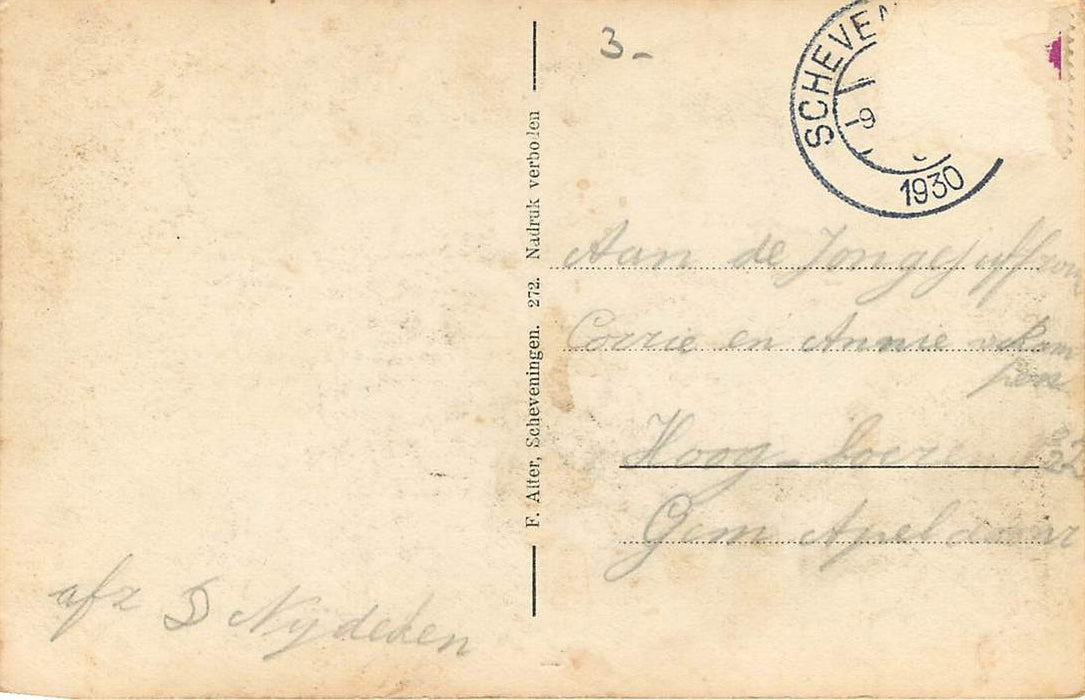 3-
SCHEVEN
-9
1930
F. Alter, Scheveningen. 272. Nadruk verboden
Aan de Jongejuffrouw
Corrie en Annie
Hoog
Gem Apeldoorn
afz D Nijdeken